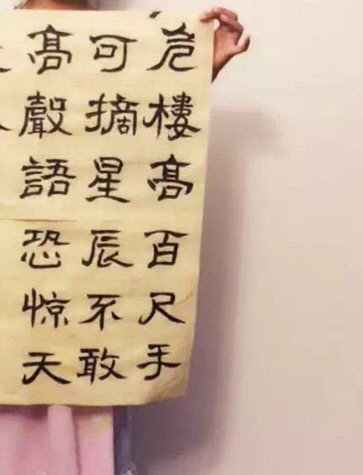 危樓高百尺手
可摘星辰不敢
高聲語恐惊天